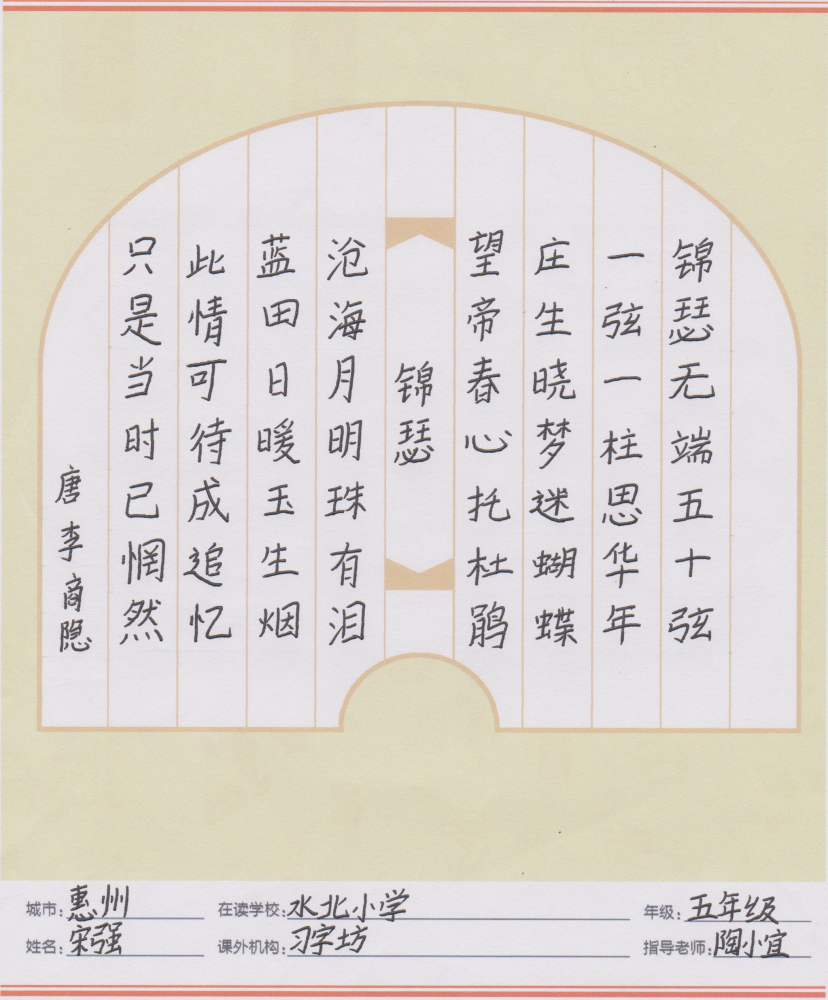 锦瑟无端五十弦
一弦一柱思华年
庄生晓梦迷蝴蝶
望帝春心托杜鹃
锦瑟
沧海月明珠有泪
蓝田日暖玉生烟
此情可待成追忆
只是当时已惘然
唐李商隐
城市：惠州 在读学校：水北小学 年级：五年级
姓名：宋强 课外机构：习字坊 指导老师：陶小宜